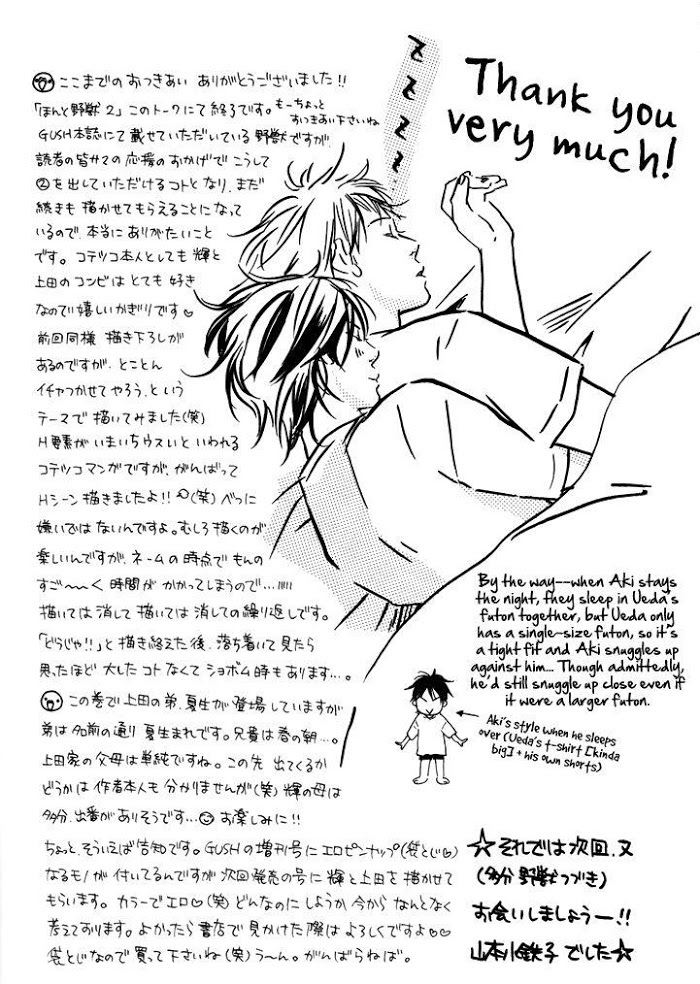 ここまでのおつきあい ありがとうございました!!
「ほんと野獣2」このトークにて終了です。もーちょっと
おつきあい下さいね
GUSH本誌にて載せていただいている野獣ですが
読者の皆サマの応援のおかげで こうして
②を出していただけるコトとなり、まだ
続きも描かせてもらえることになって
いるので、本当にありがたいこと
です。コテツコ本人としても輝と
上田のコンビはとても好き
なので嬉しいかぎりです♡
前回同様 描き下ろしが
あるのですが、とことん
イチャつかせてやろう、という
テーマで描いてみました(笑)
H要素がいまいちウスいといわれる
コテツコマンガですが、がんばって
Hシーン描きましたよ!!(笑)べつに
嫌いではないんですよ。むしろ描くのが
楽しいんですが、ネームの時点でもんの
すご〜〜く時間がかかってしまうので…!!!!!
描いては消して描いては消しての繰り返しです。
「どうじゃ!!」と描き終えた後、落ち着いて見たら
思ったほど大したコトなくてショボム時もあります…。
この巻で上田の弟、夏生が登場していますが
弟は名前の通り夏生まれです。兄貴は春の朝…。
上田家の父母は単純ですね。この先 出てくるか
どうかは作者本人も分かりませんが(笑)輝の母は
多分、出番がありそうです…お楽しみに!!
ちょっと、そういえば告知です。GUSHの増刊号にエロピンナップ(袋とじ♡)
なるモノが付いてるんですが 次回発売の号に 輝と上田を描かせて
もらいます。カラーでエロ♡(笑) どんなのにしようか今からなんとなく
考えております。よかったら書店で見かけた際はよろしくですよ♡♡
袋とじなので買って下さいね(笑)う〜ん。がんばらねば。
z z z z z
Thank you
very much!
By the way--when Aki stays
the night, they sleep in Ueda's
futon together, but Ueda only
has a single-size futon, so it's
a tight fit and Aki snuggles up
against him... Though admittedly,
he'd still snuggle up close even if
it were a larger futon.
Aki's style when he sleeps
over (Ueda's t-shirt [kinda
big] + his own shorts)
☆それでは次回、又
(多分 野獣つづき)
お会いしましょうー!!
山本小鉄子でした☆